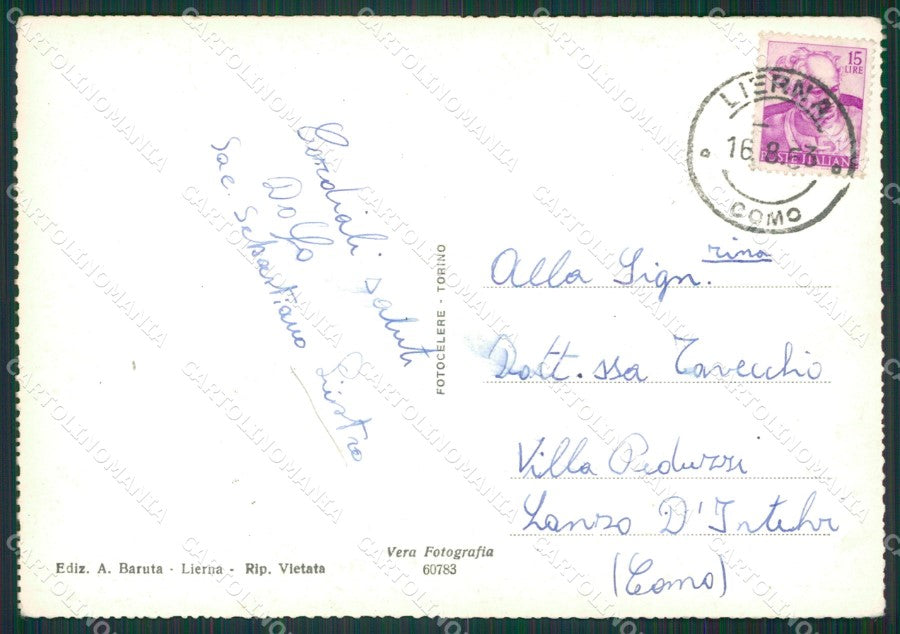 Cordiali saluti
Sac. Sebastiano
FOTOCELERE - TORINO
15
LIRE
POSTE ITALIANE
LIERNA
16.8.63
COMO
Alla Sign.rina
Dott.ssa Tavecchio
Villa Peduzzi
Lanzo D'Intelvi
(Como)
Vera Fotografia
60783
Ediz. A. Baruta - Lierna - Rip. Vietata
CARTOLINOMANIA